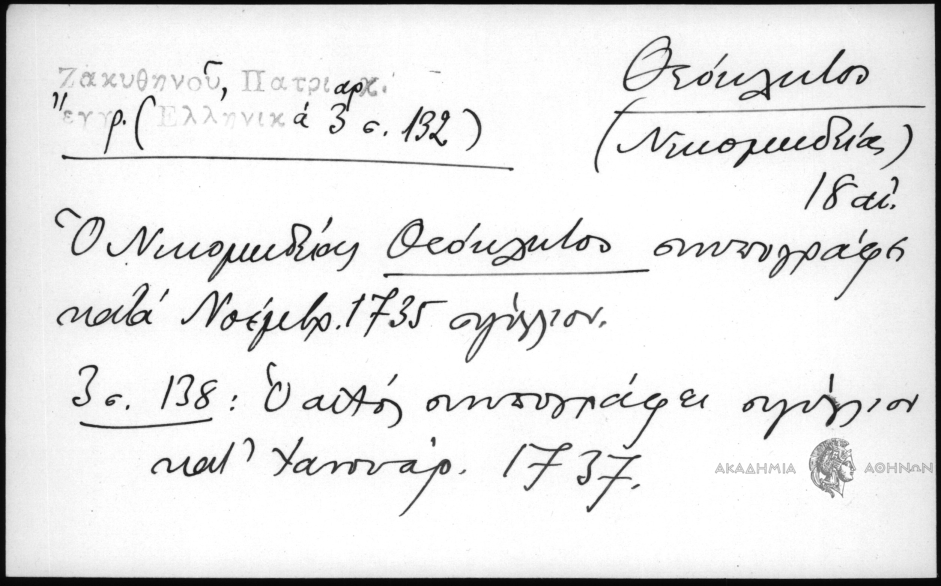 Ζακυθηνοῦ, Πατριαρχ.
ἔγγρ. (Ἑλληνικά 3 σ. 132)
Θεόκλητος
(Νικομηδείας)
18 αἰ.
Ὁ Νικομηδείας Θεόκλητος συνυπογράφει
κατά Νοέμβρ. 1735 σιγίλλιον.
3 σ. 138: Ὁ αὐτός συνυπογράφει σιγίλλιον
κατ' Ἰανουάρ. 1737.
ΑΚΑΔΗΜΙΑ ΑΘΗΝΩΝ